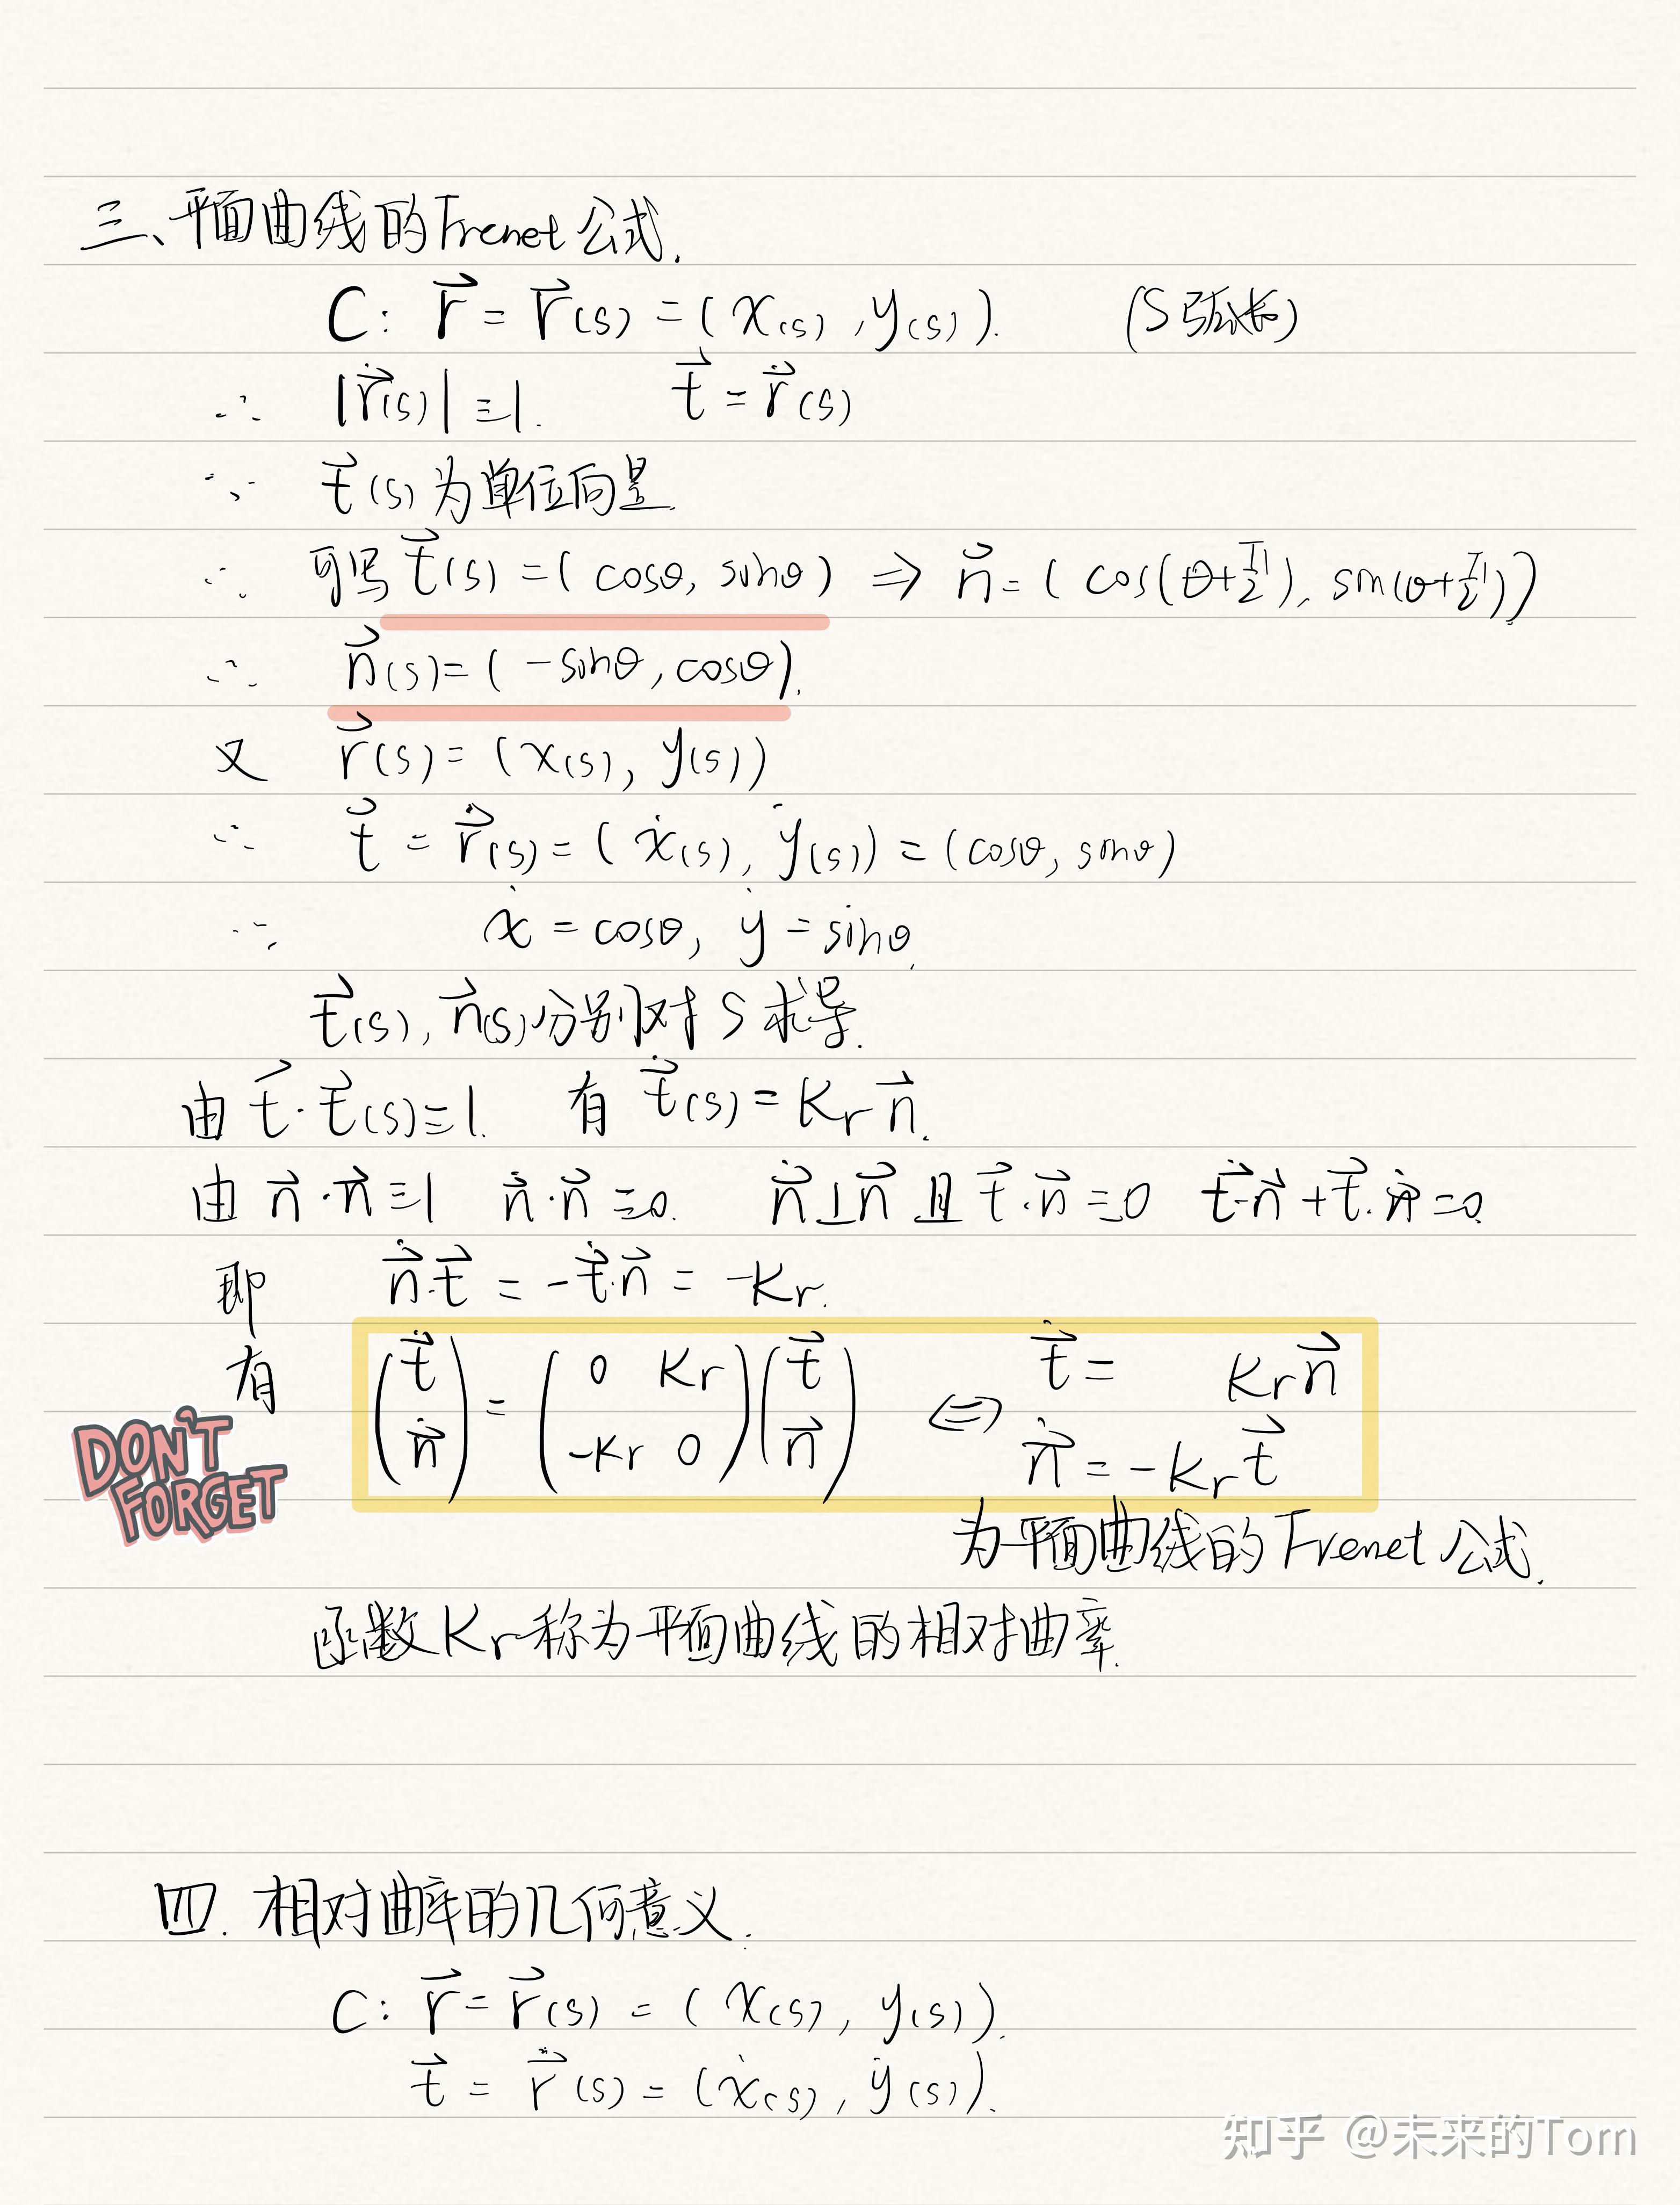 三、平面曲线的Frenet公式.
C: r⃗ = r⃗(s) = (x(s), y(s)). (S弧长)
∴ |ṙ⃗(s)| ≡ 1. t⃗ = ṙ⃗(s)
∵ t⃗(s)为单位向量.
∴ 可写 t⃗(s) = (cosθ, sinθ) ⇒ n⃗ = (cos(θ+π/2), sin(θ+π/2))
∴ n⃗(s) = (-sinθ, cosθ).
又 r⃗(s) = (x(s), y(s))
∴ t⃗ = ṙ⃗(s) = (ẋ(s), ẏ(s)) = (cosθ, sinθ)
∴ ẋ = cosθ, ẏ = sinθ.
t⃗(s), n⃗(s)分别对S求导.
由 t⃗·t⃗(s) ≡ 1. 有 ṫ⃗(s) = Kr n⃗.
由 n⃗·n⃗ ≡ 1 ṅ⃗·n⃗ ≡ 0. ṅ⃗⊥n⃗ 且 t⃗·n⃗ ≡ 0 ṫ⃗·n⃗ + t⃗·ṅ⃗ = 0.
即 ṅ⃗·t⃗ = -ṫ⃗·n⃗ = -Kr.
有 (ṫ⃗ ; ṅ⃗) = (0 Kr ; -Kr 0)(t⃗ ; n⃗) ⇔ ṫ⃗ = Kr n⃗
ṅ⃗ = -Kr t⃗
DON'T
FORGET
为平面曲线的Frenet公式.
函数Kr称为平面曲线的相对曲率.
四. 相对曲率的几何意义.
C: r⃗ = r⃗(s) = (x(s), y(s)).
t⃗ = ṙ⃗(s) = (ẋ(s), ẏ(s)).
知乎 @未来的Tom